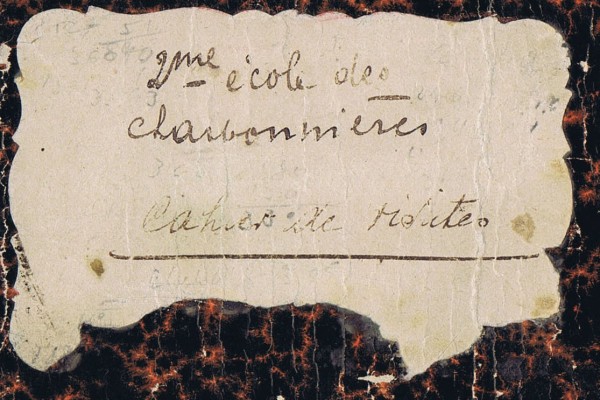 2me école des
charbonnières
Cahier de visites